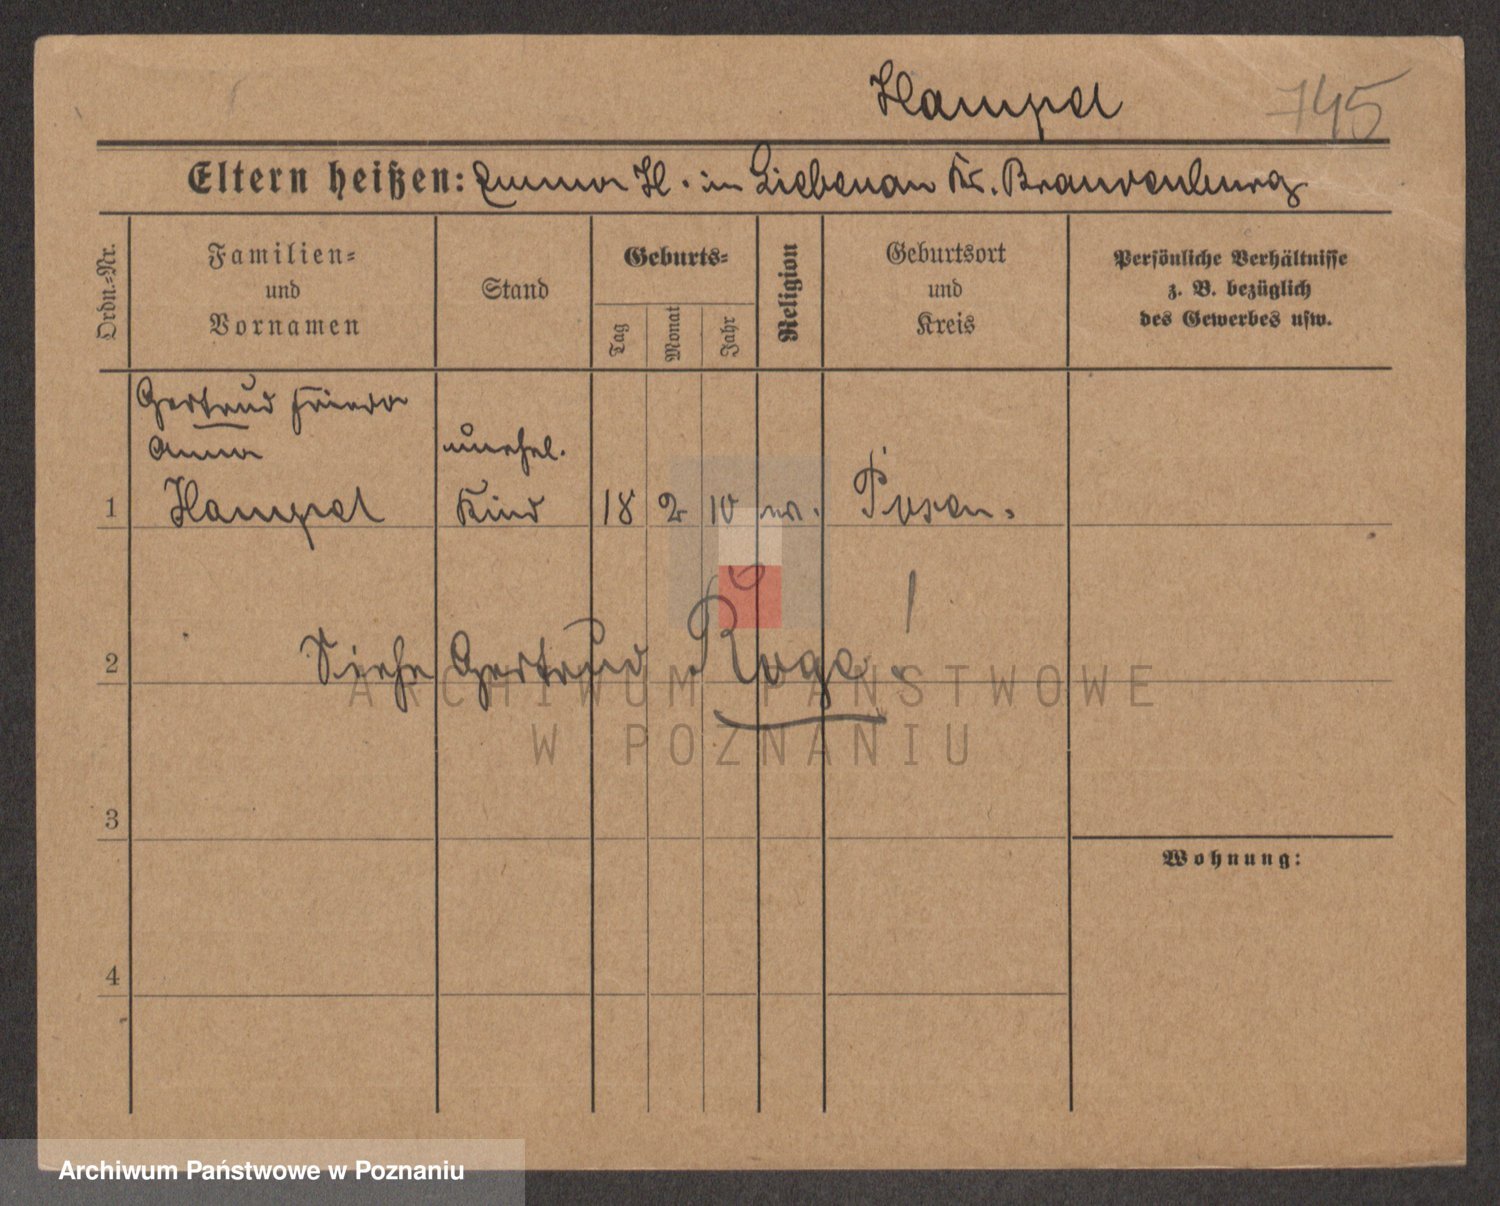 Hampel 745
Eltern heißen: Emma H. in Liebenau Kr. Brandenburg
Ordn.-Nr.
Familien-
und
Vornamen
Stand
Geburts-
Tag
Monat
Jahr
Religion
Geburtsort
und
Kreis
Persönliche Verhältnisse
z. B. bezüglich
des Gewerbes usw.
Gertrud Frieda
Anna
unehel.
1 Hampel Kind 18 2 10 ev. Posen.
2 Siehe Gertrud Roga.
ARCHIWUM PAŃSTWOWE
W POZNANIU
3
Wohnung:
4
Archiwum Państwowe w Poznaniu